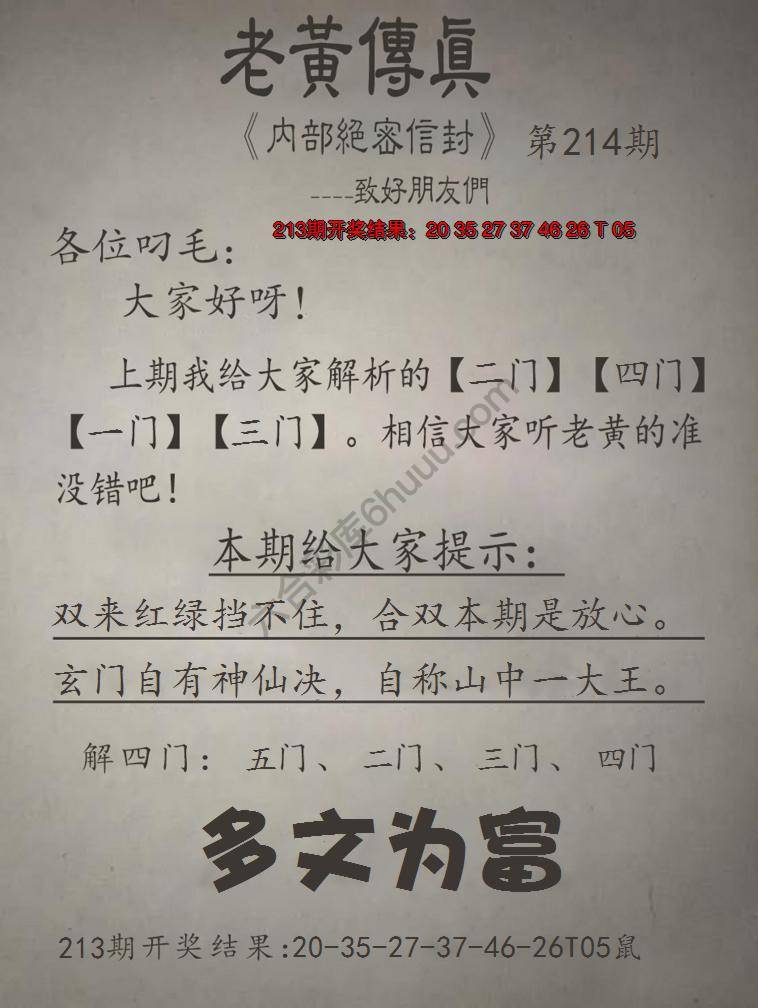 老黃傳眞
《内部絕密信封》 第214期
----致好朋友們
213期开奖结果：20 35 27 37 46 26 T 05
各位叼毛：
大家好呀！
上期我给大家解析的【二门】【四门】
【一门】【三门】。相信大家听老黄的准
没错吧！
本期给大家提示：
双来红绿挡不住，合双本期是放心。
玄门自有神仙决，自称山中一大王。
解四门： 五门、 二门、 三门、 四门
多文为富
213期开奖结果:20-35-27-37-46-26T05鼠
六合彩库6huuu.com